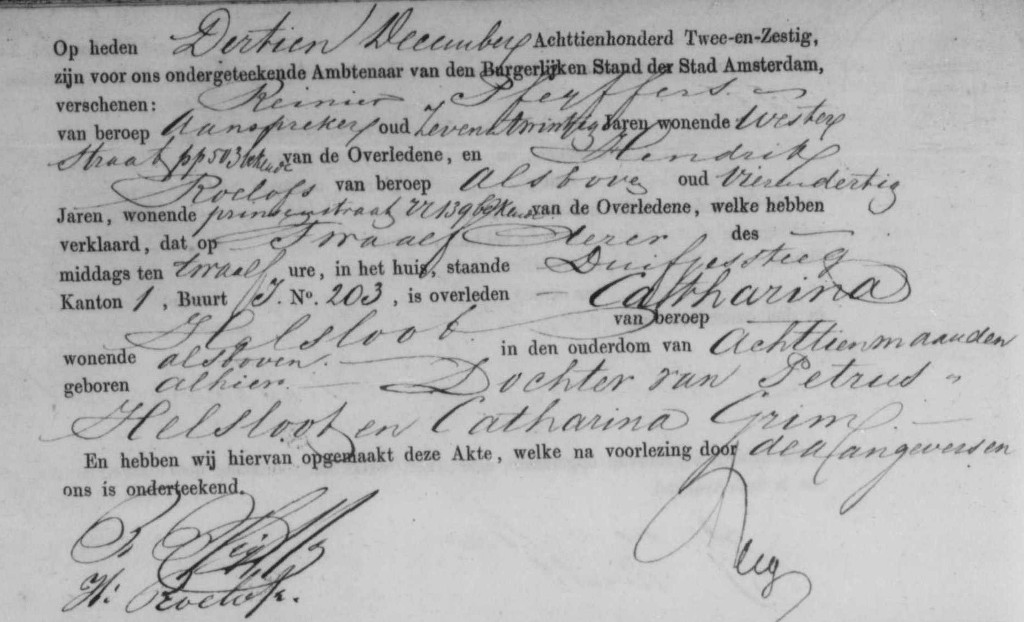 Op heden Dertien December Achttienhonderd Twee-en-Zestig,
zijn voor ons ondergeteekende Ambtenaar van den Burgerlijken Stand der Stad Amsterdam,
verschenen: Reinier Pfeyffers
van beroep Aanspreker oud Zevenentwintig Jaren wonende Wester
straat pp503 bekende van de Overledene, en Hendrik
Roelofs van beroep alsboven oud Vierendertig
Jaren, wonende prinsenstraat VV139 bekende van de Overledene, welke hebben
verklaard, dat op Twaalf dezer des
middags ten twaalf ure, in het huis, staande Duifjessteeg
Kanton 1, Buurt J. No. 203, is overleden Catharina
Helsloot van beroep
wonende alsboven. in den ouderdom van Achttien maanden
geboren alhier. Dochter van Petrus
Helsloot en Catharina Grim
En hebben wij hiervan opgemaakt deze Akte, welke na voorlezing door de Aangevers en
ons is onderteekend.
R
H: Roelofs.